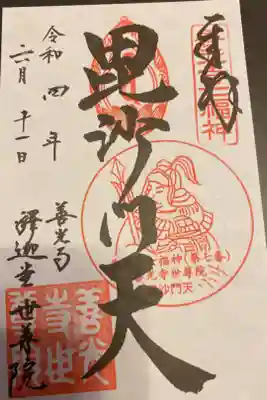 奉拝
七福神
毘沙門天
福神(第七番)
光寺世尊院
沙門天
令和四年
六月十一日
善光寺
釋迦堂世尊院
善光
寺世